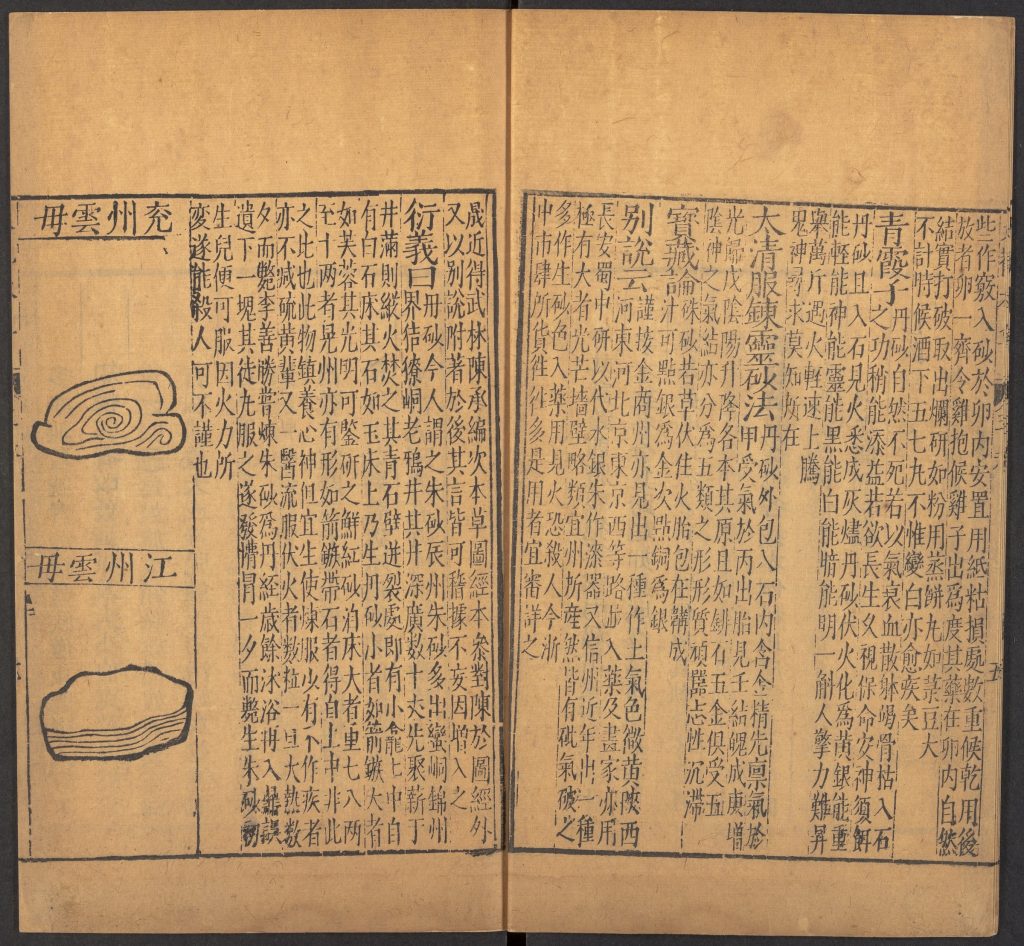 此作竅入砂於卵内安置用紙粘損處數重候乾用後
放者卵一齊令雞抱候雞子出爲度其藥在卵内自然
結實打破取出爛研如粉用蒸餅丸如菉豆大
不計時候酒下五七九不惟變白亦愈疾矣
青霞子
丹砂自然不死若以氣衰血散躰竭骨枯入石
之功稍能添益若欲長生久視保命安神須餌
丹砂且入石見火悉成灰燼丹砂伏火化爲黄銀能重
能輕能神能靈能黑能白能暗能明一斛人擎力難昇
舉萬斤遇火輕速上騰
鬼神尋求莫知所在
太清服鍊靈砂法
丹砂外包入石内含金精先禀氣於
甲受氣於丙出胎見壬結魄成庚增
光歸戊陰陽升降各本其原且如石五金俱受五
陰神之氣結亦分爲五類之形形質頑嚚志性沉滯
寶藏論
硃砂若草伏住火胎包在鞴成
汁可點銀爲金次點銅爲銀
別說云
謹按金商州亦見用出一種作土氣色微黄陝西
河東河北京東京西等路並入藥及畫家亦用
長安蜀中研以代水銀朱作漆器又信州近年出一種
極有大者光芒墻壁略類宜州所産然皆有砒氣破之
多作生砂色入藥用見火恐殺人今浙
中市肆所貨往往多是用者宜審詳之
晟近得武林陳承編次本草圖經本參對陳於圖經外
又以別說附著於後其言皆可稽據不妄因增入之
衍義曰
丹砂今人謂之朱砂辰州朱砂多出蠻峒錦州
界狤獠峒老鴉井其井深廣數十丈先聚薪于
井滿則縱火焚之其青石壁迸裂處即有小龕龕中自
有白石床其石如玉床上乃生丹砂小者如箭鏃大者
如芙蓉其光明可鑒研之鮮紅砂泊床大者重七八兩
至十兩者晃州亦有形如箭鏃帶石者得自土中非此
之比也此物鎮養心神但宜生使煉服少有不作疾者
亦不減硫黄輩又一醫流服伏火者數粒一旦大熱數
夕而斃李善勝嘗煉朱砂爲丹經歲餘沐浴再入鼎誤
遺下一塊其徒丸服之遂發懵冒一夕而斃生朱砂初
生兒便可服因火力所
変遂能殺人可不謹也
兖州雲母
江州雲母